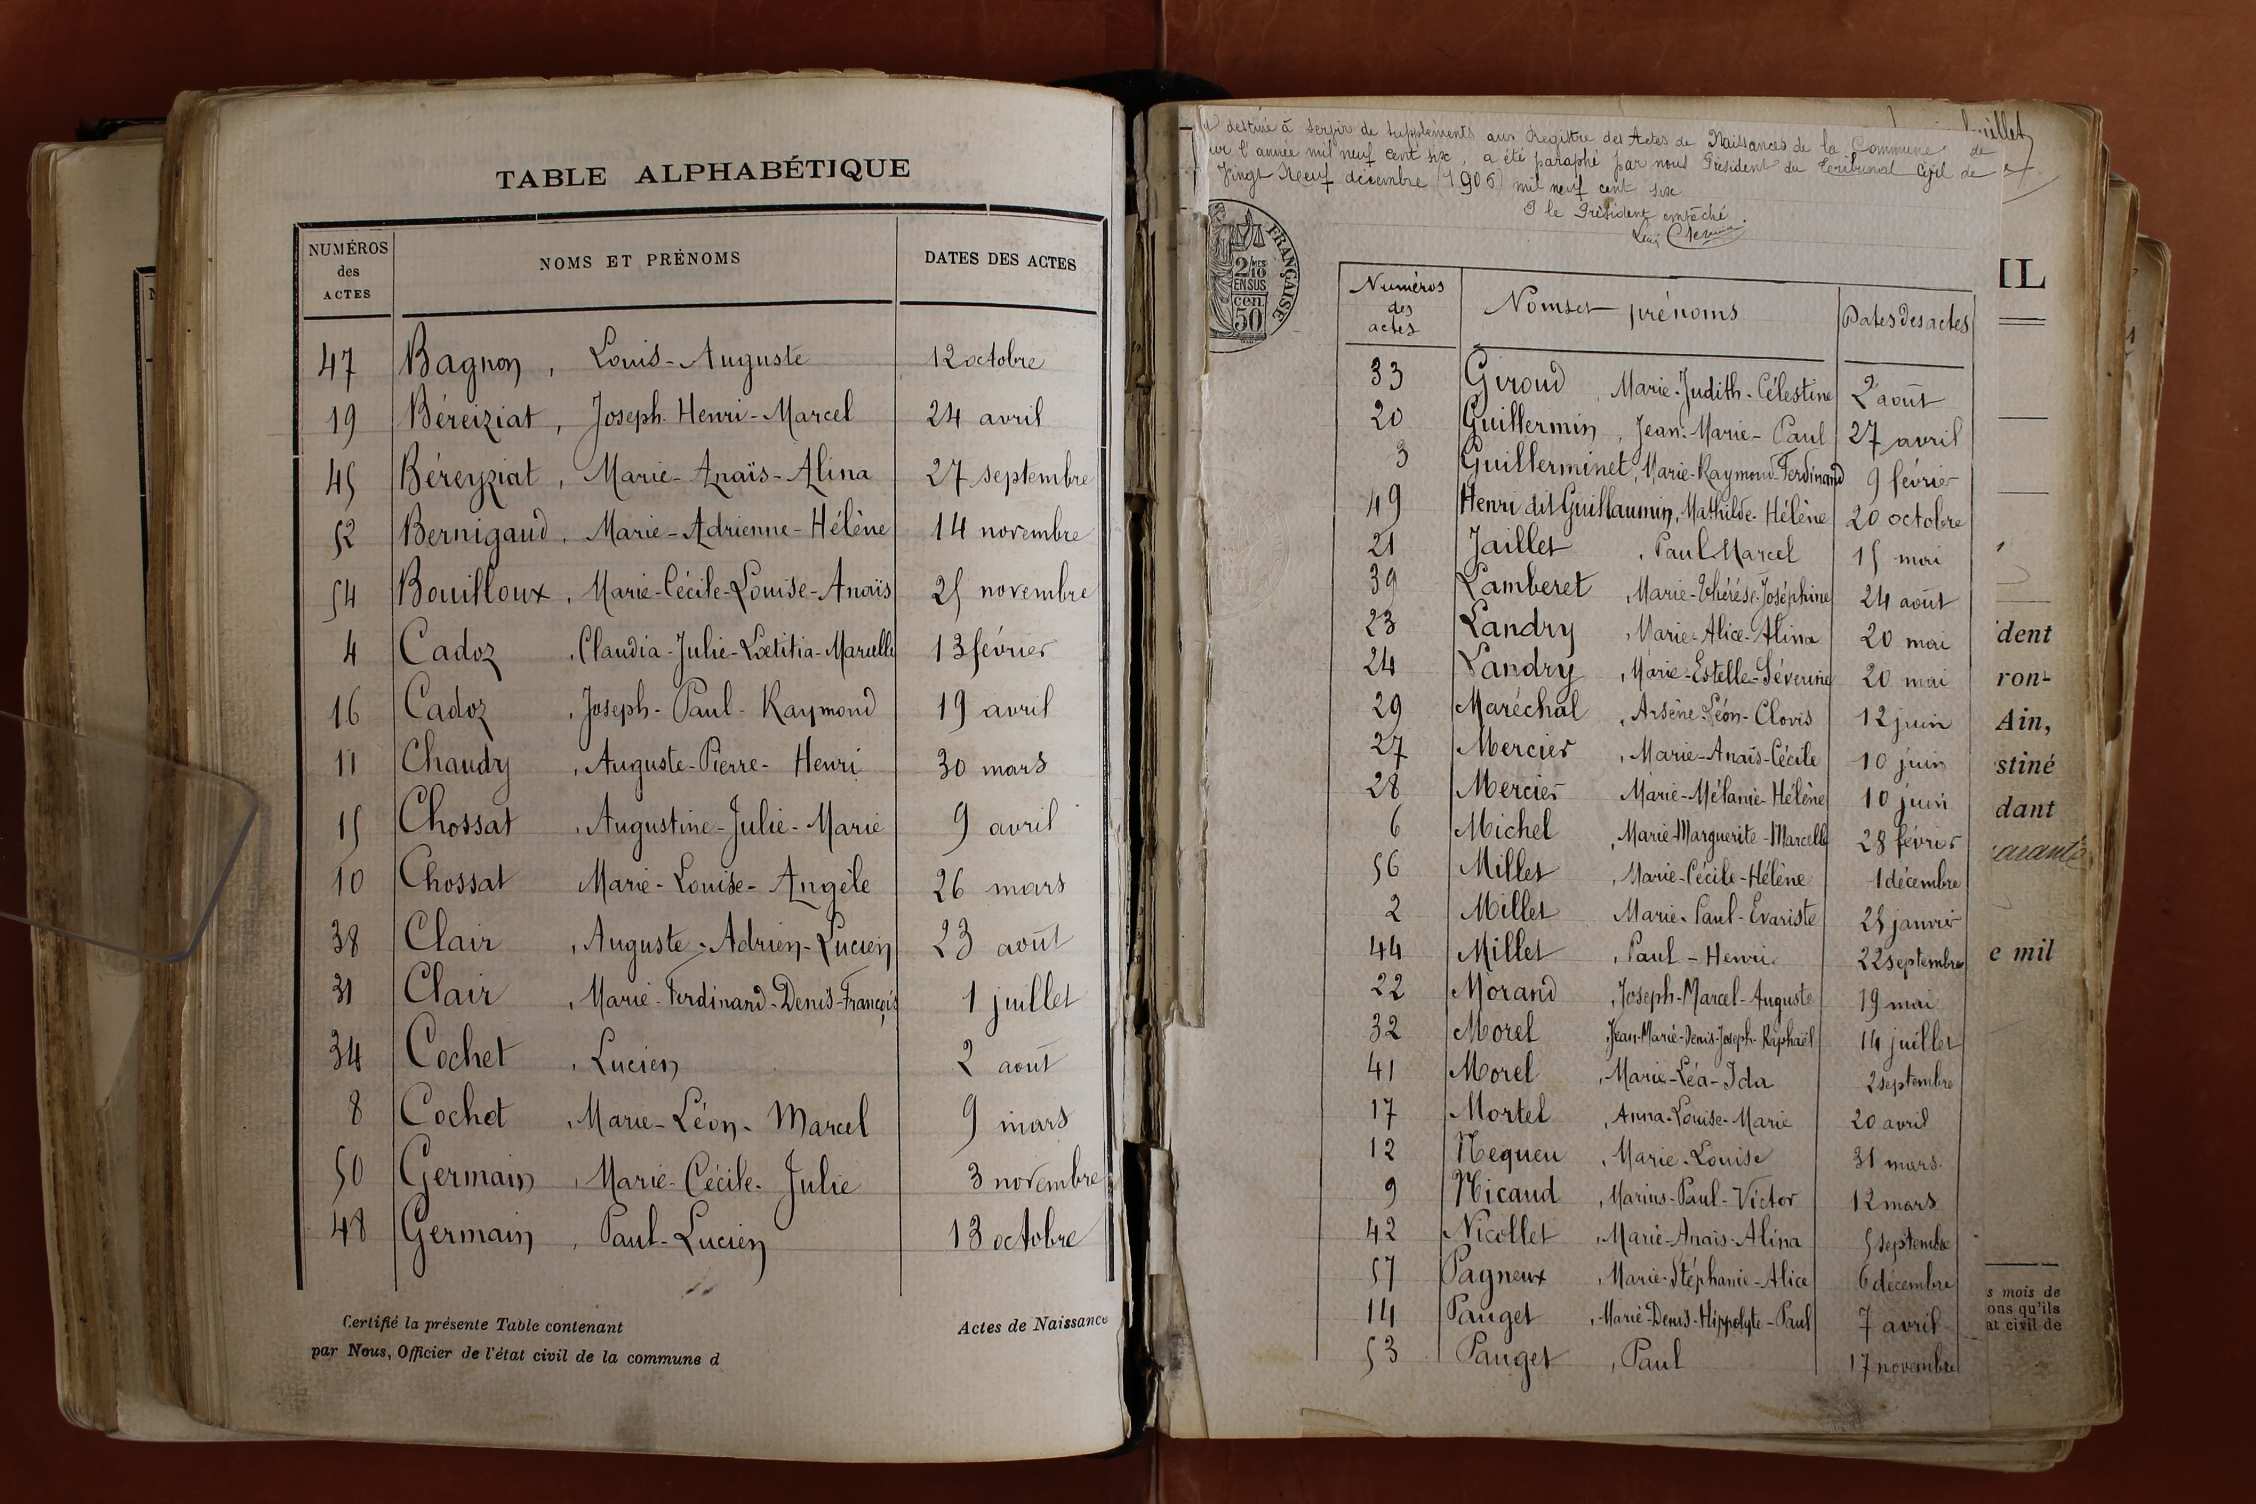 TABLE ALPHABÉTIQUE
NUMÉROS des ACTES NOMS ET PRÉNOMS DATES DES ACTES
47 Bagnon, Louis-Auguste 12 octobre
19 Béreiziat, Joseph-Henri-Marcel 24 avril
45 Béreyziat, Marie-Anaïs-Alina 27 septembre
52 Bernigaud, Marie-Adrienne-Hélène 14 novembre
54 Bouilloux, Marie-Cécile-Louise-Anaïs 25 novembre
4 Cadoz, Claudia-Julie-Lœtitia-Marcelle 13 février
16 Cadoz, Joseph-Paul-Raymond 19 avril
11 Chaudy, Auguste-Pierre-Henri 30 mars
15 Chossat, Augustine-Julie-Marie 9 avril
10 Chossat Marie-Louise-Angèle 26 mars
38 Clair, Auguste-Adrien-Lucien 23 août
31 Clair, Marie-Ferdinand-Denis-François 1 juillet
34 Cochet, Lucien 2 août
8 Cochet, Marie-Léon-Marcel 9 mars
50 Germain, Marie-Cécile-Julie 3 novembre
48 Germain, Paul-Lucien 13 octobre
Certifié la présente Table contenant Actes de Naissance
par Nous, Officier de l'état civil de la commune d
destiné à servir de suppléments aux Registre des Actes de Naissances de la Commune de
l'année mil neuf cent six, a été paraphé par nous Président du Tribunal Civil de
Vingt Neuf décembre (1906) mil neuf cent six
le Président empêché.
FRANÇAISE
2/10 MES
EN SUS
cen
50
Numéros des actes Noms et prénoms Dates des actes
33 Giroud, Marie-Judith-Célestine 2 août
20 Guillermin, Jean-Marie-Paul 27 avril
3 Guillerminet, Marie-Raymond-Ferdinand 9 février
49 Henri dit Guillaumin, Mathilde-Hélène 20 octobre
21 Jaillet, Paul Marcel 15 mai
39 Lamberet, Marie-Thérèse-Joséphine 24 août
23 Landry, Marie-Alice-Alina 20 mai
24 Landry, Marie-Estelle-Séverine 20 mai
29 Maréchal, Arsène-Léon-Clovis 12 juin
27 Mercier, Marie-Anaïs-Cécile 10 juin
28 Mercier Marie-Mélanie-Hélène 10 juin
6 Michel, Marie-Marguerite-Marcelle 28 février
56 Millet, Marie-Cécile-Hélène 1 décembre
2 Millet Marie-Paul-Evariste 25 janvier
44 Millet, Paul-Henri 22 septembre
22 Morand, Joseph-Marcel-Auguste 19 mai
32 Morel, Jean-Marie-Denis-Joseph-Raphaël 14 juillet
41 Morel, Marie-Léa-Ida 2 septembre
17 Mortel, Anna-Louise-Marie 20 avril
12 Nequeu, Marie-Louise 31 mars
9 Nicaud, Marius-Paul-Victor 12 mars
42 Nicollet, Marie-Anaïs-Alina 5 septembre
57 Pagneux, Marie-Stéphanie-Alice 6 décembre
14 Pauget, Marie-Denis-Hippolyte-Paul 7 avril
53 Pauget, Paul 17 novembre
IL
dent
ron-
Ain,
stiné
dant
e mil
s mois de
ons qu'ils
at civil de